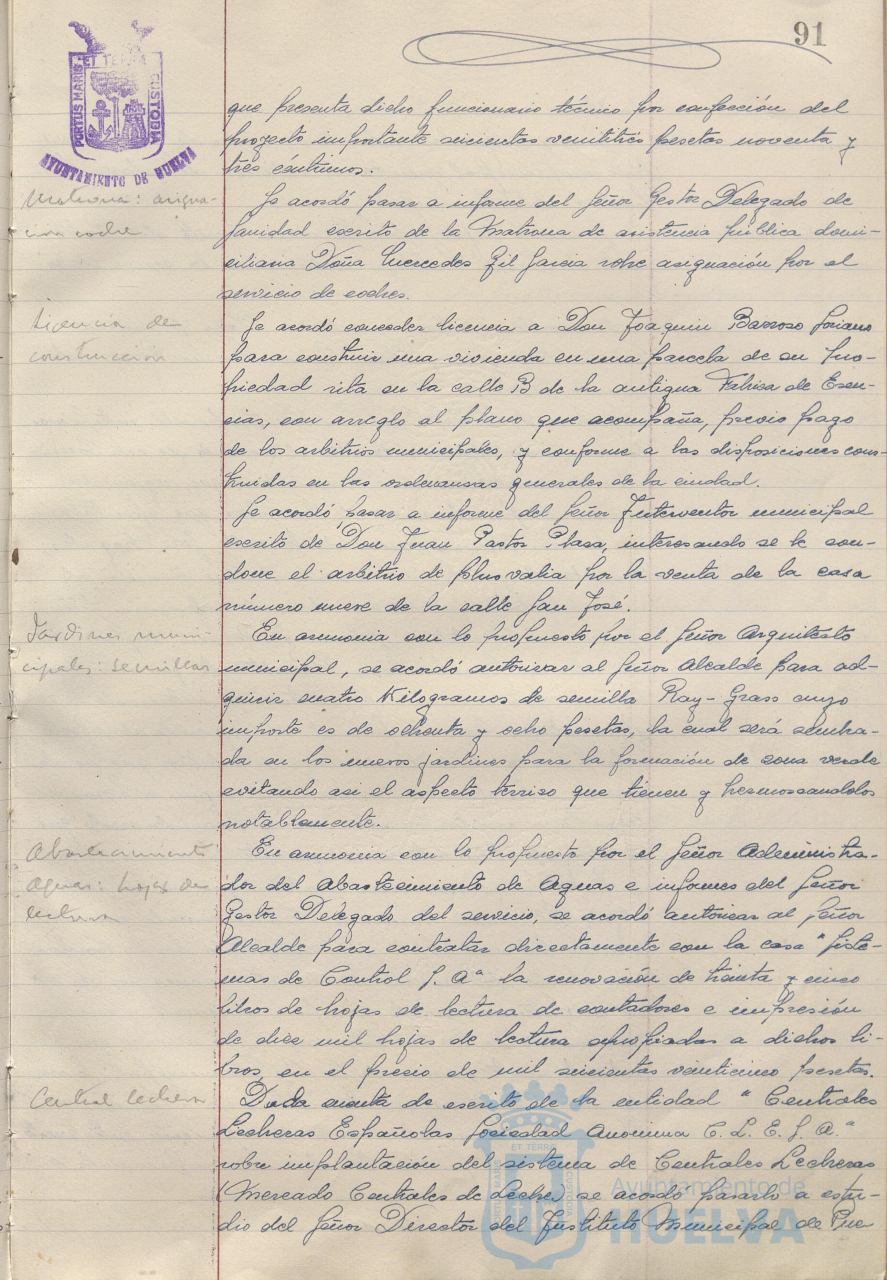 91
PORTUS MARIS ET TERRA CUSTODIA
AYUNTAMIENTO DE HUELVA
que presenta dicho funcionario técnico por confección del
proyecto importante seicientas veintitrés pesetas noventa y
tres céntimos.
Matrona: asigna-
ción coche
Se acordó pasar a informe del Señor Gestor Delegado de
Sanidad escrito de la Matrona de asistencia pública domi-
ciliaria Doña Mercedes Gil Garcia sobre asignación por el
servicio de coches.
Licencia de
construcción
Se acordó conceder licencia a Don Joaquin Barroso Soriano
para construir una vivienda en una parcela de su pro-
piedad sita en la calle B de la antigua Fabrica de Esen-
cias, con arreglo al plano que acompaña, previo pago
de los arbitrios municipales, y conforme a las disposiciones cons-
truidas en las ordenansas generales de la ciudad.
Se acordó pasar a informe del Señor Interventor municipal
escrito de Don Juan Pastor Plasa, interesando se le con-
done el arbitrio de plus valia por la venta de la casa
número nueve de la calle San José.
Jardines muni-
cipales: semillas
En armonia con lo propuesto por el Señor Arquitecto
municipal, se acordó autorizar al Señor Alcalde para ad-
quirir cuatro Kilogramos de semilla Ray-Grass cuyo
importe es de ochenta y ocho pesetas, la cual será sembra-
da en los nuevos jardines para la formación de zona verde
evitando asi el aspecto terriso que tienen y hermoseandolos
notablemente.
Abastecimiento
Aguas: hojas de
lectura
En armonia con lo propuesto por el Señor Administra-
dor del Abastecimiento de Aguas e informes del Señor
Gestor Delegado del servicio, se acordó autorizar al Señor
Alcalde para contratar directamente con la casa "Siste-
mas de Control S. A" la renovación de treinta y cinco
libros de hojas de lectura de contadores e impresión
de diez mil hojas de lectura apropiadas a dichos li-
bros, en el precio de mil seicientas veinticinco pesetas.
Central lechera
Dada cuenta de escrito de la entidad "Centrales
Lecheras Españolas Sociedad Anonima C. L. E. S. A."
sobre implantación del sistema de Centrales Lecheras
(Mercado Centrales de Leche) se acordó pasarlo a estu-
dio del Señor Director del Instituto Municipal de Pue
Ayuntamiento de
HUELVA